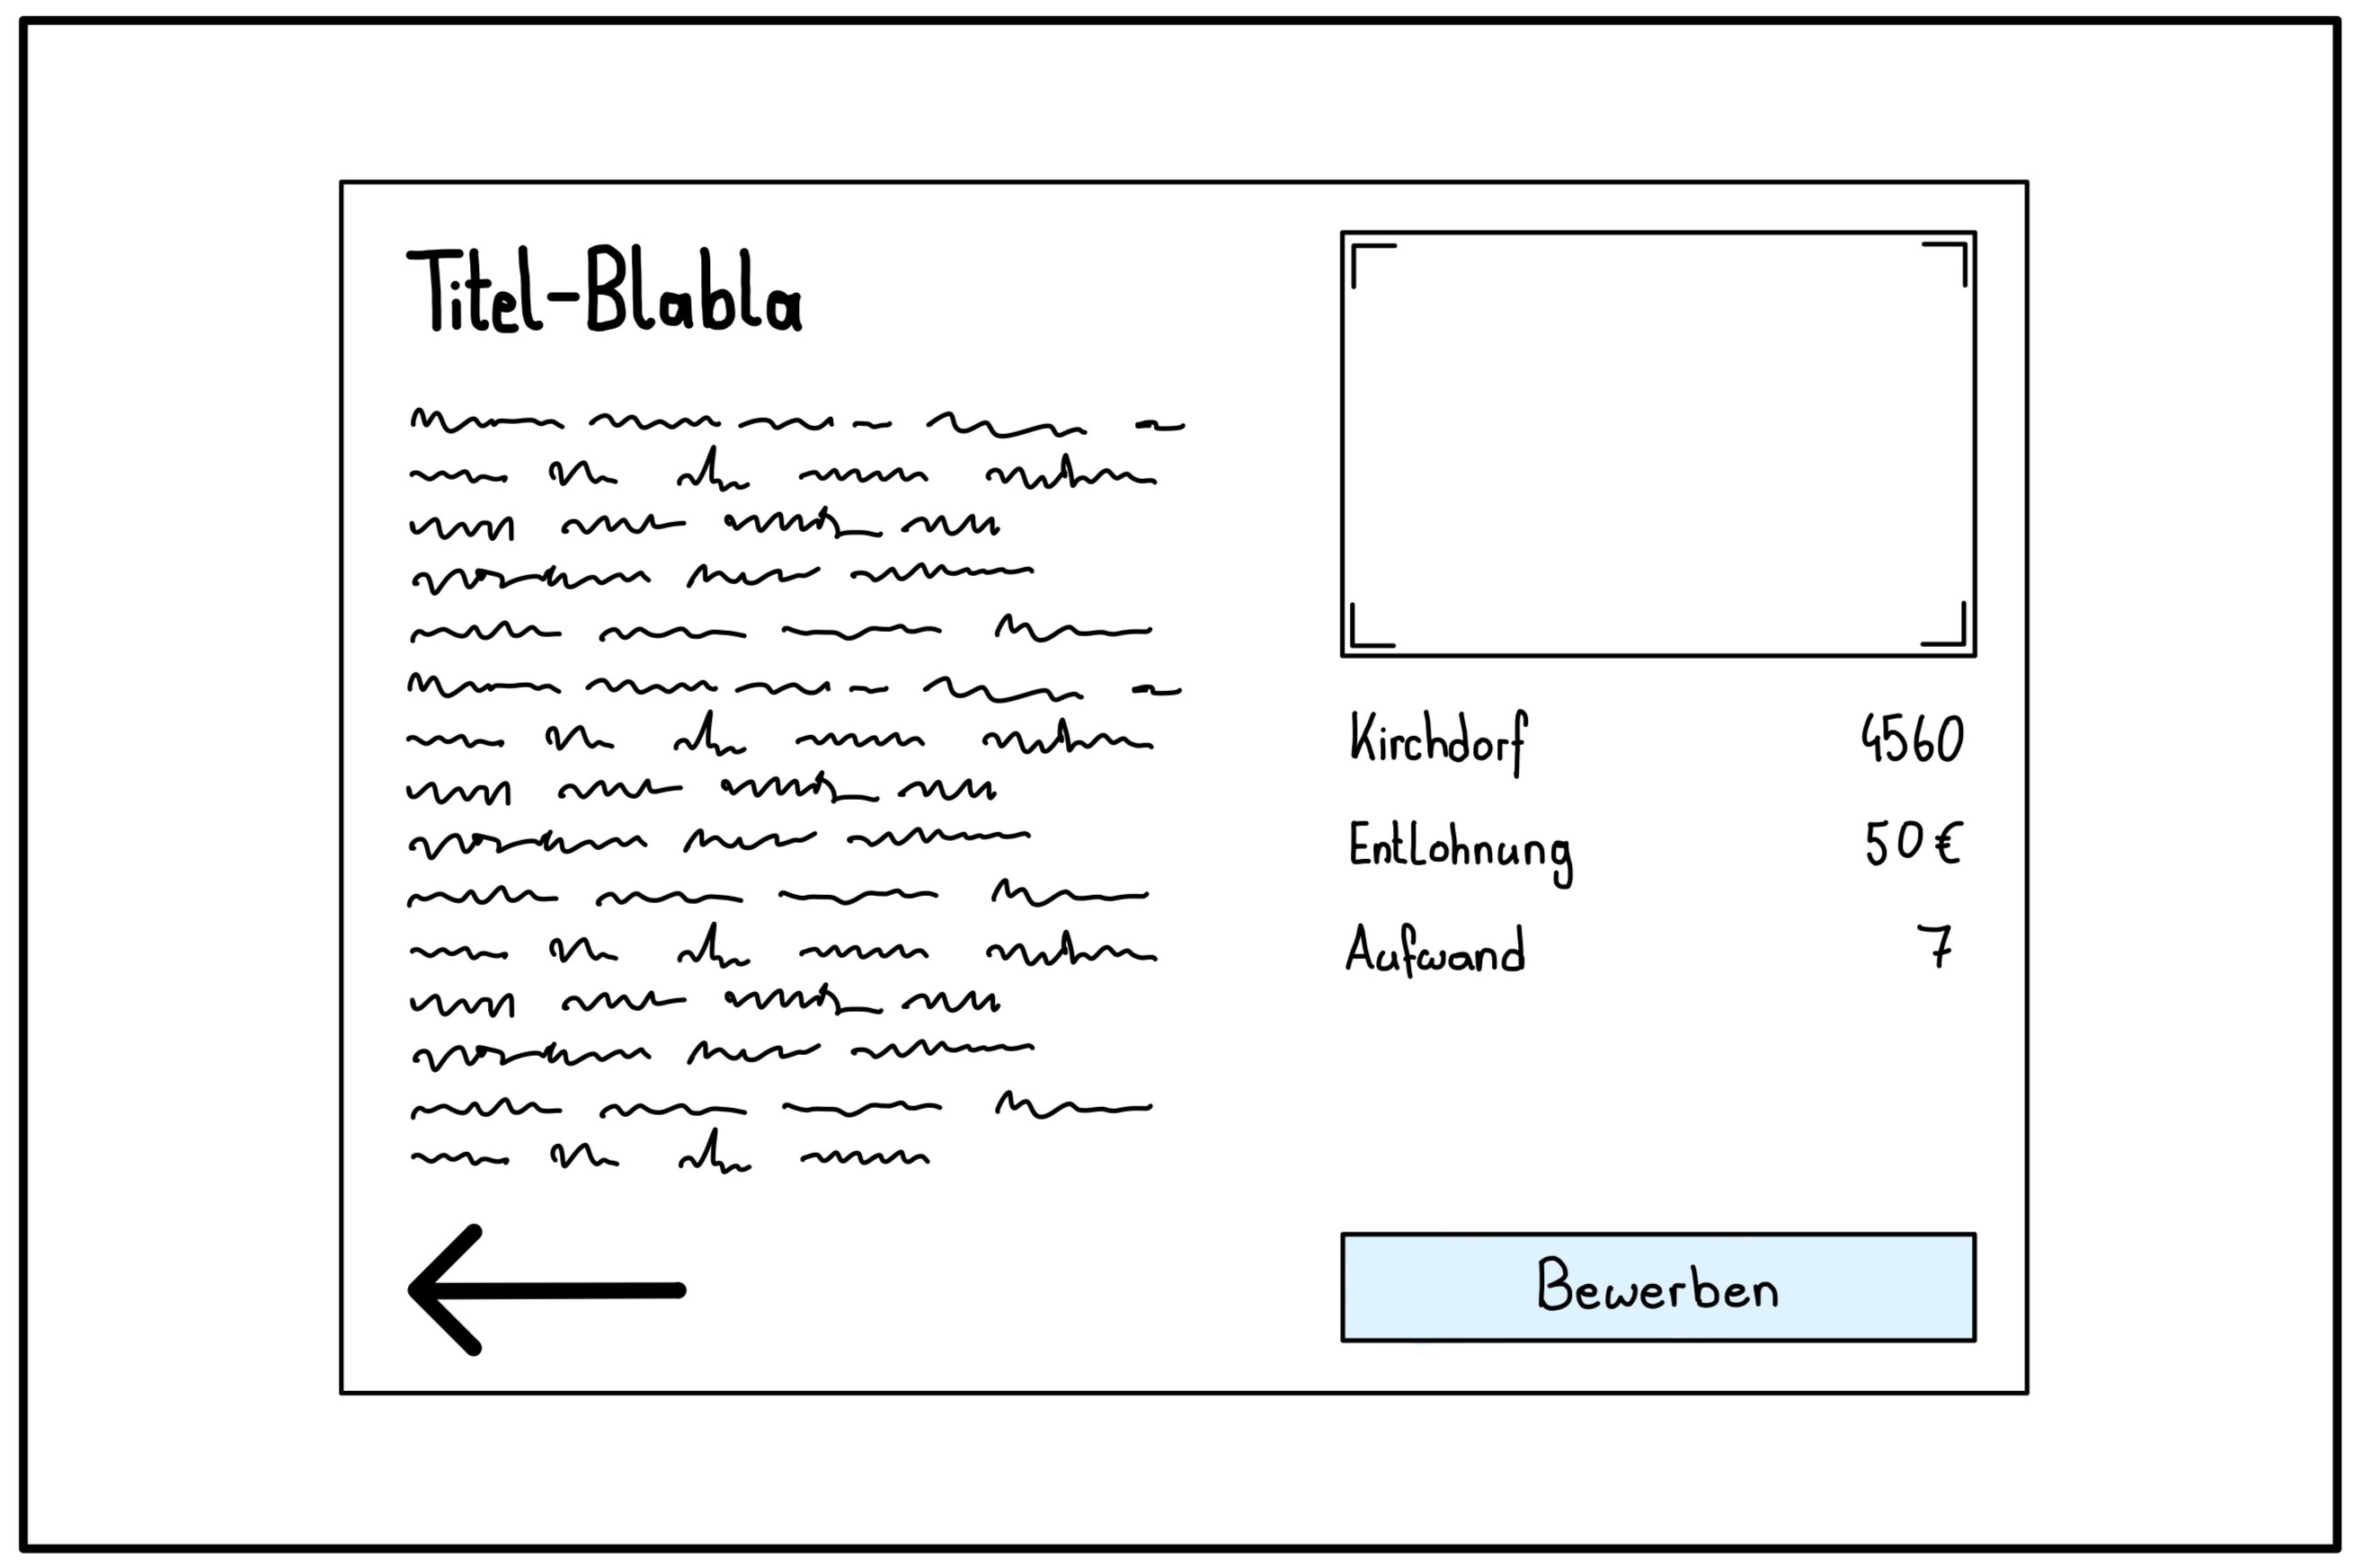 Titel-Blabla
Kirchdorf 4560
Entlohnung 50€
Aufwand 7
Bewerben